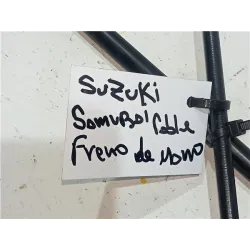 SUZUKi
Samurai Cable
Freno de Mano